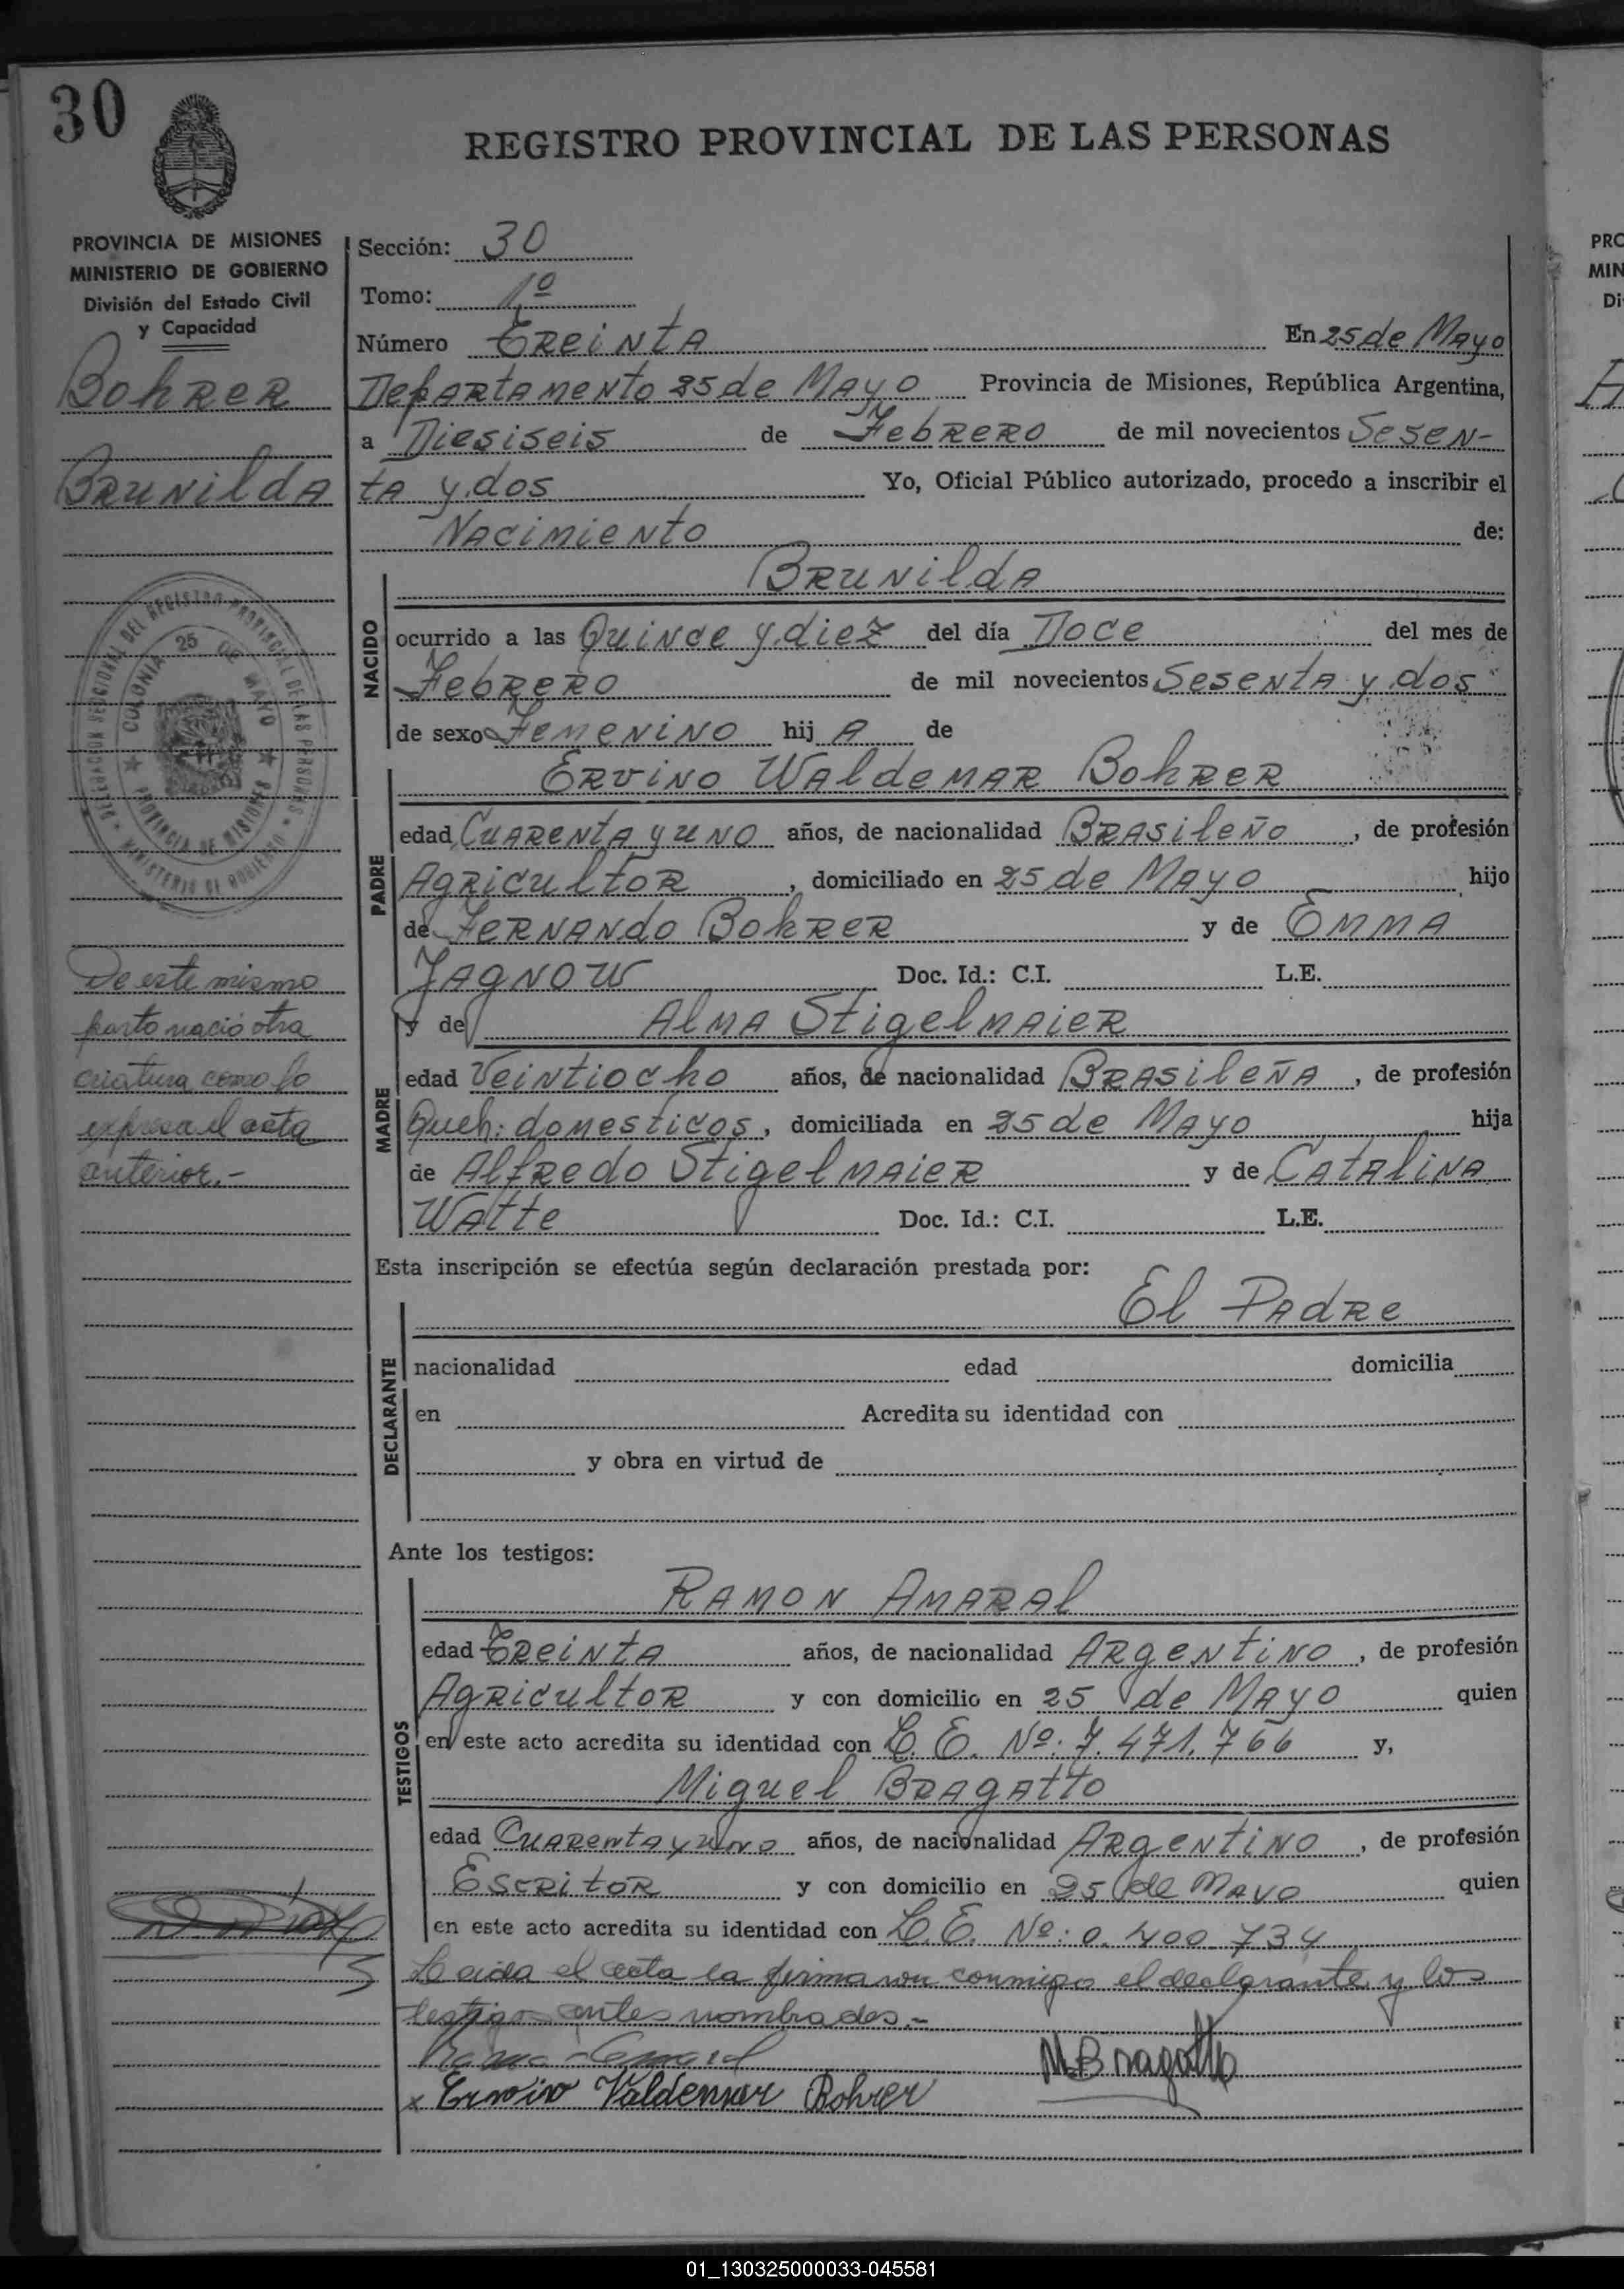 30
REGISTRO PROVINCIAL DE LAS PERSONAS
PROVINCIA DE MISIONES
MINISTERIO DE GOBIERNO
División del Estado Civil
y Capacidad
Bohrer
Brunilda
DELEGACION SECCIONAL DEL REGISTRO PROVINCIAL DE LAS PERSONAS
MINISTERIO DE GOBIERNO
COLONIA 25 DE MAYO
PROVINCIA DE MISIONES
De este mismo
parto nació otra
criatura como lo
expresa el acta
anterior.-
Sección: 30
Tomo: 1º
Número Treinta En 25 de Mayo
Departamento 25 de Mayo Provincia de Misiones, República Argentina,
a Diesiseis de Febrero de mil novecientos Sesen-
ta y dos Yo, Oficial Público autorizado, procedo a inscribir el
Nacimiento de:
NACIDO
Brunilda
ocurrido a las Quince y diez del día Doce del mes de
Febrero de mil novecientos Sesenta y dos
de sexo Femenino hij A de
PADRE
Ervino Waldemar Bohrer
edad Cuarenta y uno años, de nacionalidad Brasileño, de profesión
Agricultor, domiciliado en 25 de Mayo hijo
de Fernando Bohrer y de Emma
Jagnow Doc. Id.: C.I. L.E.
y de Alma Stigelmaier
MADRE
edad Veintiocho años, de nacionalidad Brasileña, de profesión
Queh: domesticos, domiciliada en 25 de Mayo hija
de Alfredo Stigelmaier y de Catalina
Watte Doc. Id.: C.I. L.E.
Esta inscripción se efectúa según declaración prestada por:
El Padre
DECLARANTE
nacionalidad edad domicilia
en Acredita su identidad con
y obra en virtud de
Ante los testigos:
TESTIGOS
Ramon Amaral
edad Treinta años, de nacionalidad Argentino, de profesión
Agricultor y con domicilio en 25 de Mayo quien
en este acto acredita su identidad con L.E. Nº. 7.471.766 y,
Miguel Bragatto
edad Cuarenta y uno años, de nacionalidad Argentino, de profesión
Escritor y con domicilio en 25 de Mayo quien
en este acto acredita su identidad con L.E. Nº: 0.400.734
Leida el acta la firmaron conmigo el declarante y los
testigos antes nombrados.-
M Bragatto
x Ervino Valdemar Bohrer
PRO
MIN
Di
01_130325000033-045581